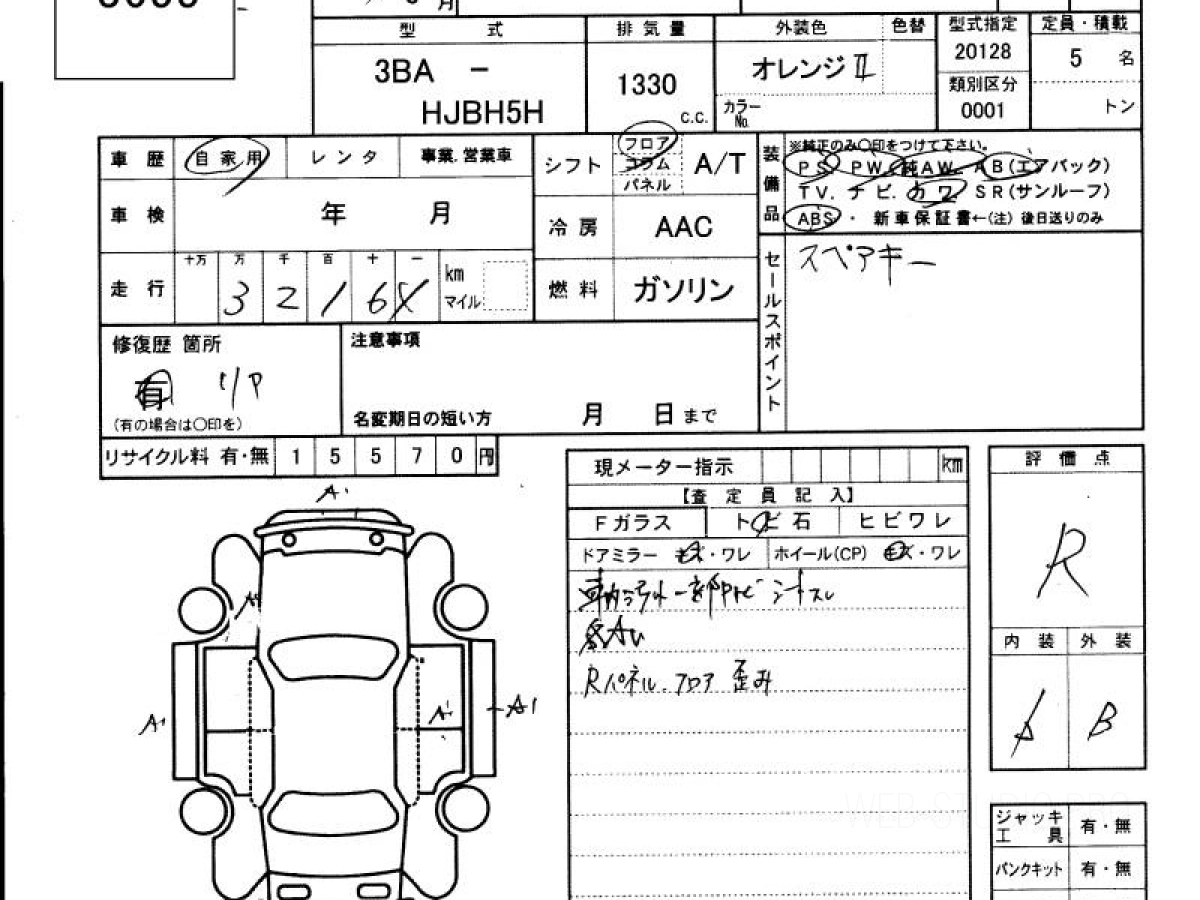 月
型 式 排気量 外装色 色替 型式指定 定員・積載
3BA － 1330 オレンジⅡ 20128 5 名
HJBH5H C.C. カラーNo. 類別区分 0001 トン
車歴 自家用 レンタ 事業.営業車
シフト フロア コラム パネル A/T
装備品 ※純正のみ○印をつけて下さい。
PS PW 純AW AB(エアバック)
TV. ナビ. カワ SR(サンルーフ)
ABS ・ 新車保証書←(注) 後日送りのみ
車検 年 月
冷房 AAC
セールスポイント スペアキー
走行 十万 万 千 百 十 一 km マイル
3 2 1 6
燃料 ガソリン
修復歴 箇所
有 リア
(有の場合は○印を)
注意事項
名変期日の短い方 月 日 まで
リサイクル料 有・無 1 5 5 7 0 円
現メーター指示 km
【査定員記入】
Fガラス トビ石 ヒビワレ
ドアミラー キズ・ワレ ホイール(CP) キズ・ワレ
Rパネル.フロア 歪み
A1
A1
A1
A1
A1
評価点
R
内装 外装
A B
ジャッキ工具 有・無
パンクキット 有・無